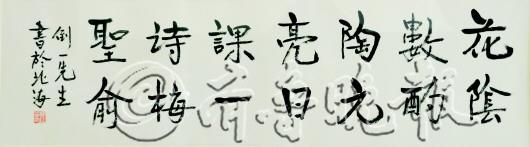 花陰
數酌
陶元
亮日
課一
詩梅
聖俞
一先生
書於北海
齐鲁晚報